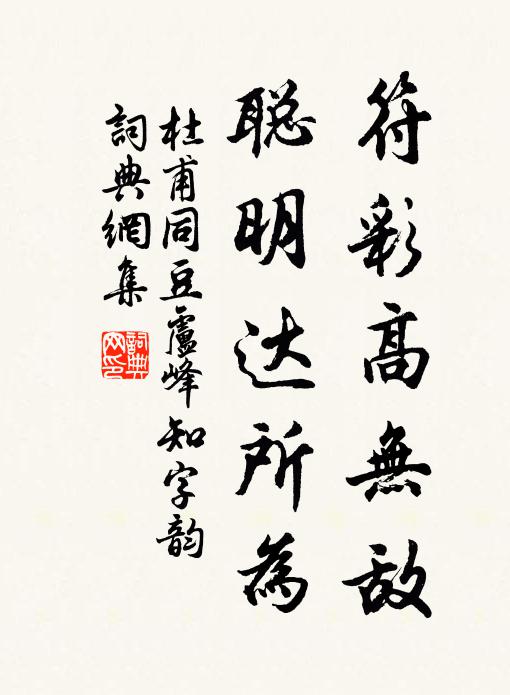 符彩高無敌
聪明达所為
杜甫同豆盧峰知字韵
詞典網集
詞典网印